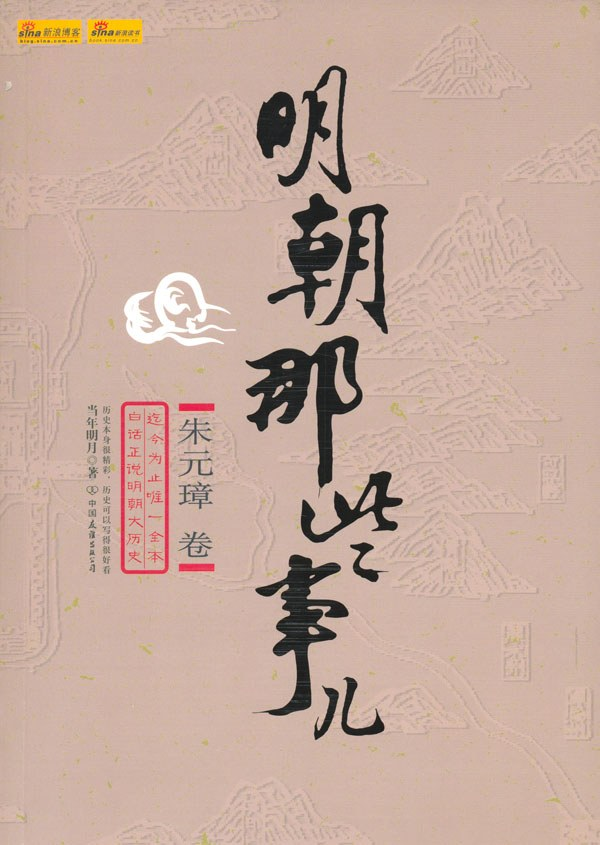 sina新浪博客
blog.sina.com.cn
sina新浪读书
book.sina.com.cn
明朝那些事儿
朱元璋 卷
迄今为止唯一全本
白话正说明朝大历史
历史本身很精彩,历史可以写得很好看
当年明月 著
中国友谊出版公司